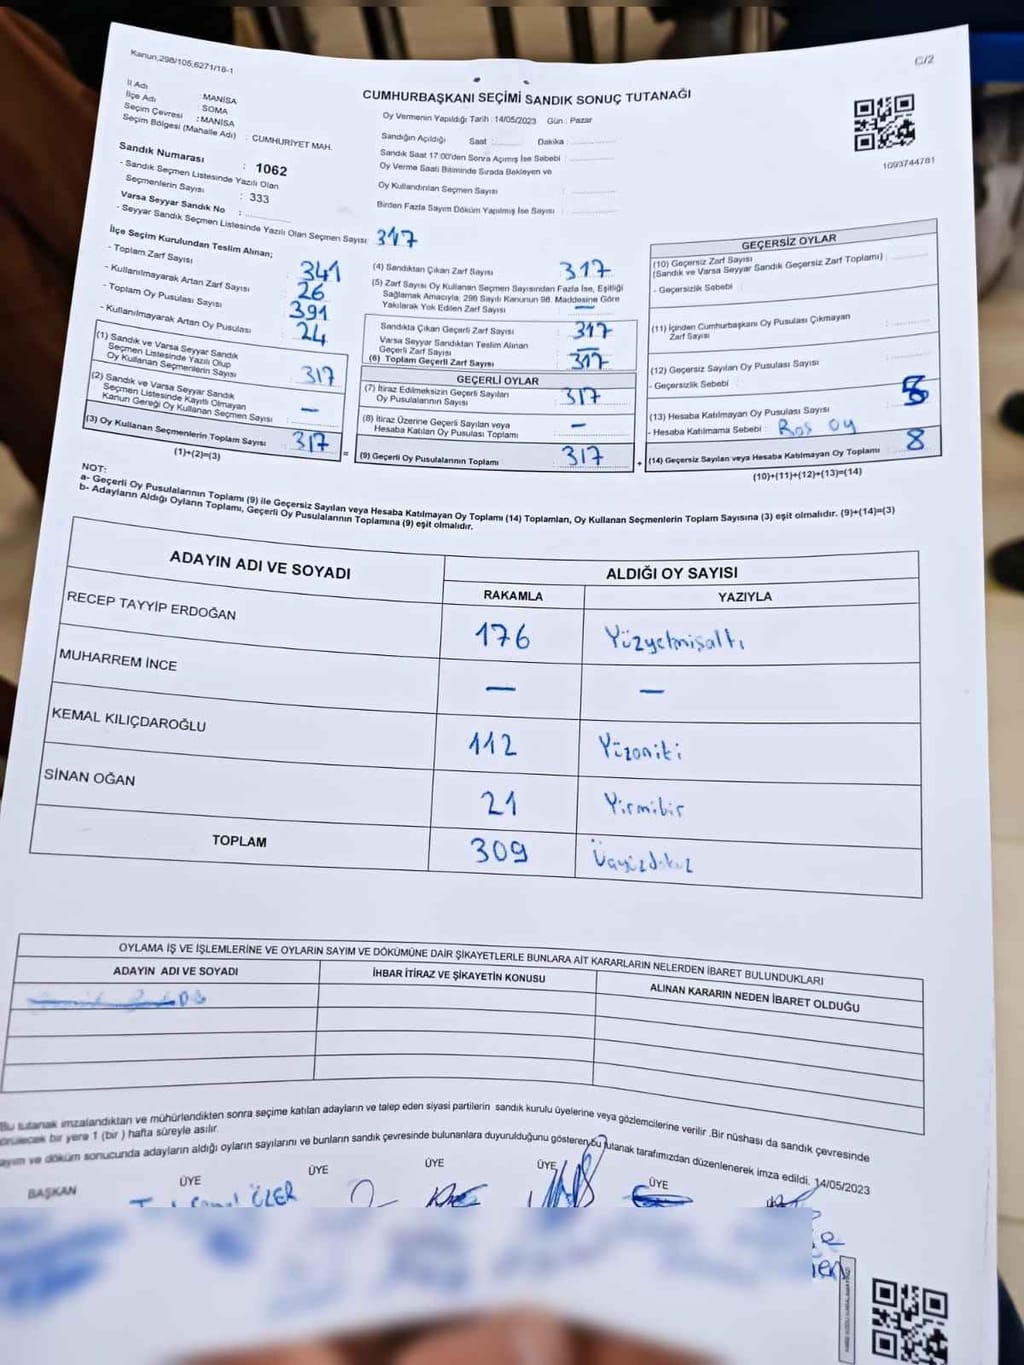 Kanun;298/105;6271/18-1
C/2
CUMHURBAŞKANI SEÇİMİ SANDIK SONUÇ TUTANAĞI
İl Adı : MANİSA
İlçe Adı : SOMA
Seçim Çevresi : MANİSA
Seçim Bölgesi (Mahalle Adı) : CUMHURİYET MAH.
Sandık Numarası : 1062
- Sandık Seçmen Listesinde Yazılı Olan
Seçmenlerin Sayısı : 333
Varsa Seyyar Sandık No :
- Seyyar Sandık Seçmen Listesinde Yazılı Olan Seçmen Sayısı 317
Oy Vermenin Yapıldığı Tarih : 14/05/2023 Gün : Pazar
Sandığın Açıldığı Saat : Dakika :
Sandık Saat 17:00'den Sonra Açımış İse Sebebi :
Oy Verme Saati Bitiminde Sırada Bekleyen ve
Oy Kullandırılan Seçmen Sayısı :
Birden Fazla Sayım Döküm Yapılmış İse Sayısı :
1093744781
İlçe Seçim Kurulundan Teslim Alınan;
- Toplam Zarf Sayısı : 341
- Kullanılmayarak Artan Zarf Sayısı : 26
- Toplam Oy Pusulası Sayısı : 391
- Kullanılmayarak Artan Oy Pusulası : 24
(1) Sandık ve Varsa Seyyar Sandık
Seçmen Listesinde Yazılı Olup
Oy Kullanan Seçmenlerin Sayısı : 317
(2) Sandık ve Varsa Seyyar Sandık
Seçmen Listesinde Kayıtlı Olmayan
Kanun Gereği Oy Kullanan Seçmen Sayısı : –
(3) Oy Kullanan Seçmenlerin Toplam Sayısı : 317
(1)+(2)=(3)
(4) Sandıktan Çıkan Zarf Sayısı : 317
(5) Zarf Sayısı Oy Kullanan Seçmen Sayısından Fazla İse, Eşitliği
Sağlamak Amacıyla, 298 Sayılı Kanunun 98. Maddesine Göre
Yakılarak Yok Edilen Zarf Sayısı : –
Sandıkta Çıkan Geçerli Zarf Sayısı : 317
Varsa Seyyar Sandıktan Teslim Alınan
Geçerli Zarf Sayısı : –
(6) Toplam Geçerli Zarf Sayısı : 317
GEÇERLİ OYLAR
(7) İtiraz Edilmeksizin Geçerli Sayılan
Oy Pusulalarının Sayısı : 317
(8) İtiraz Üzerine Geçerli Sayılan veya
Hesaba Katılan Oy Pusulası Toplamı : –
(9) Geçerli Oy Pusulalarının Toplamı : 317
GEÇERSİZ OYLAR
(10) Geçersiz Zarf Sayısı
(Sandık ve Varsa Seyyar Sandık Geçersiz Zarf Toplamı) :
- Geçersizlik Sebebi :
(11) İçinden Cumhurbaşkanı Oy Pusulası Çıkmayan
Zarf Sayısı :
(12) Geçersiz Sayılan Oy Pusulası Sayısı :
- Geçersizlik Sebebi :
(13) Hesaba Katılmayan Oy Pusulası Sayısı : 8
- Hesaba Katılmama Sebebi : Boş oy
(14) Geçersiz Sayılan veya Hesaba Katılmayan Oy Toplamı : 8
(10)+(11)+(12)+(13)=(14)
NOT:
a- Geçerli Oy Pusulalarının Toplamı (9) ile Geçersiz Sayılan veya Hesaba Katılmayan Oy Toplamı (14) Toplamları, Oy Kullanan Seçmenlerin Toplam Sayısına (3) eşit olmalıdır. (9)+(14)=(3)
b- Adayların Aldığı Oyların Toplamı, Geçerli Oy Pusulalarının Toplamına (9) eşit olmalıdır.
ADAYIN ADI VE SOYADI
ALDIĞI OY SAYISI
RAKAMLA YAZIYLA
RECEP TAYYİP ERDOĞAN 176 Yüzyetmişaltı
MUHARREM İNCE – –
KEMAL KILIÇDAROĞLU 112 Yüzoniki
SİNAN OĞAN 21 Yirmibir
TOPLAM 309 Üçyüzdokuz
OYLAMA İŞ VE İŞLEMLERİNE VE OYLARIN SAYIM VE DÖKÜMÜNE DAİR ŞİKAYETLERLE BUNLARA AİT KARARLARIN NELERDEN İBARET BULUNDUKLARI
ADAYIN ADI VE SOYADI İHBAR İTİRAZ VE ŞİKAYETİN KONUSU ALINAN KARARIN NEDEN İBARET OLDUĞU
Bu tutanak imzalandıktan ve mühürlendikten sonra seçime katılan adayların ve talep eden siyasi partilerin sandık kurulu üyelerine veya gözlemcilerine verilir .Bir nüshası da sandık çevresinde
görülecek bir yere 1 (bir ) hafta süreyle asılır.
ayım ve döküm sonucunda adayların aldığı oyların sayılarını ve bunların sandık çevresinde bulunanlara duyurulduğunu gösteren bu tutanak tarafımızdan düzenlenerek imza edildi. 14/05/2023
BAŞKAN ÜYE ÜYE ÜYE ÜYE ÜYE
ÖZER